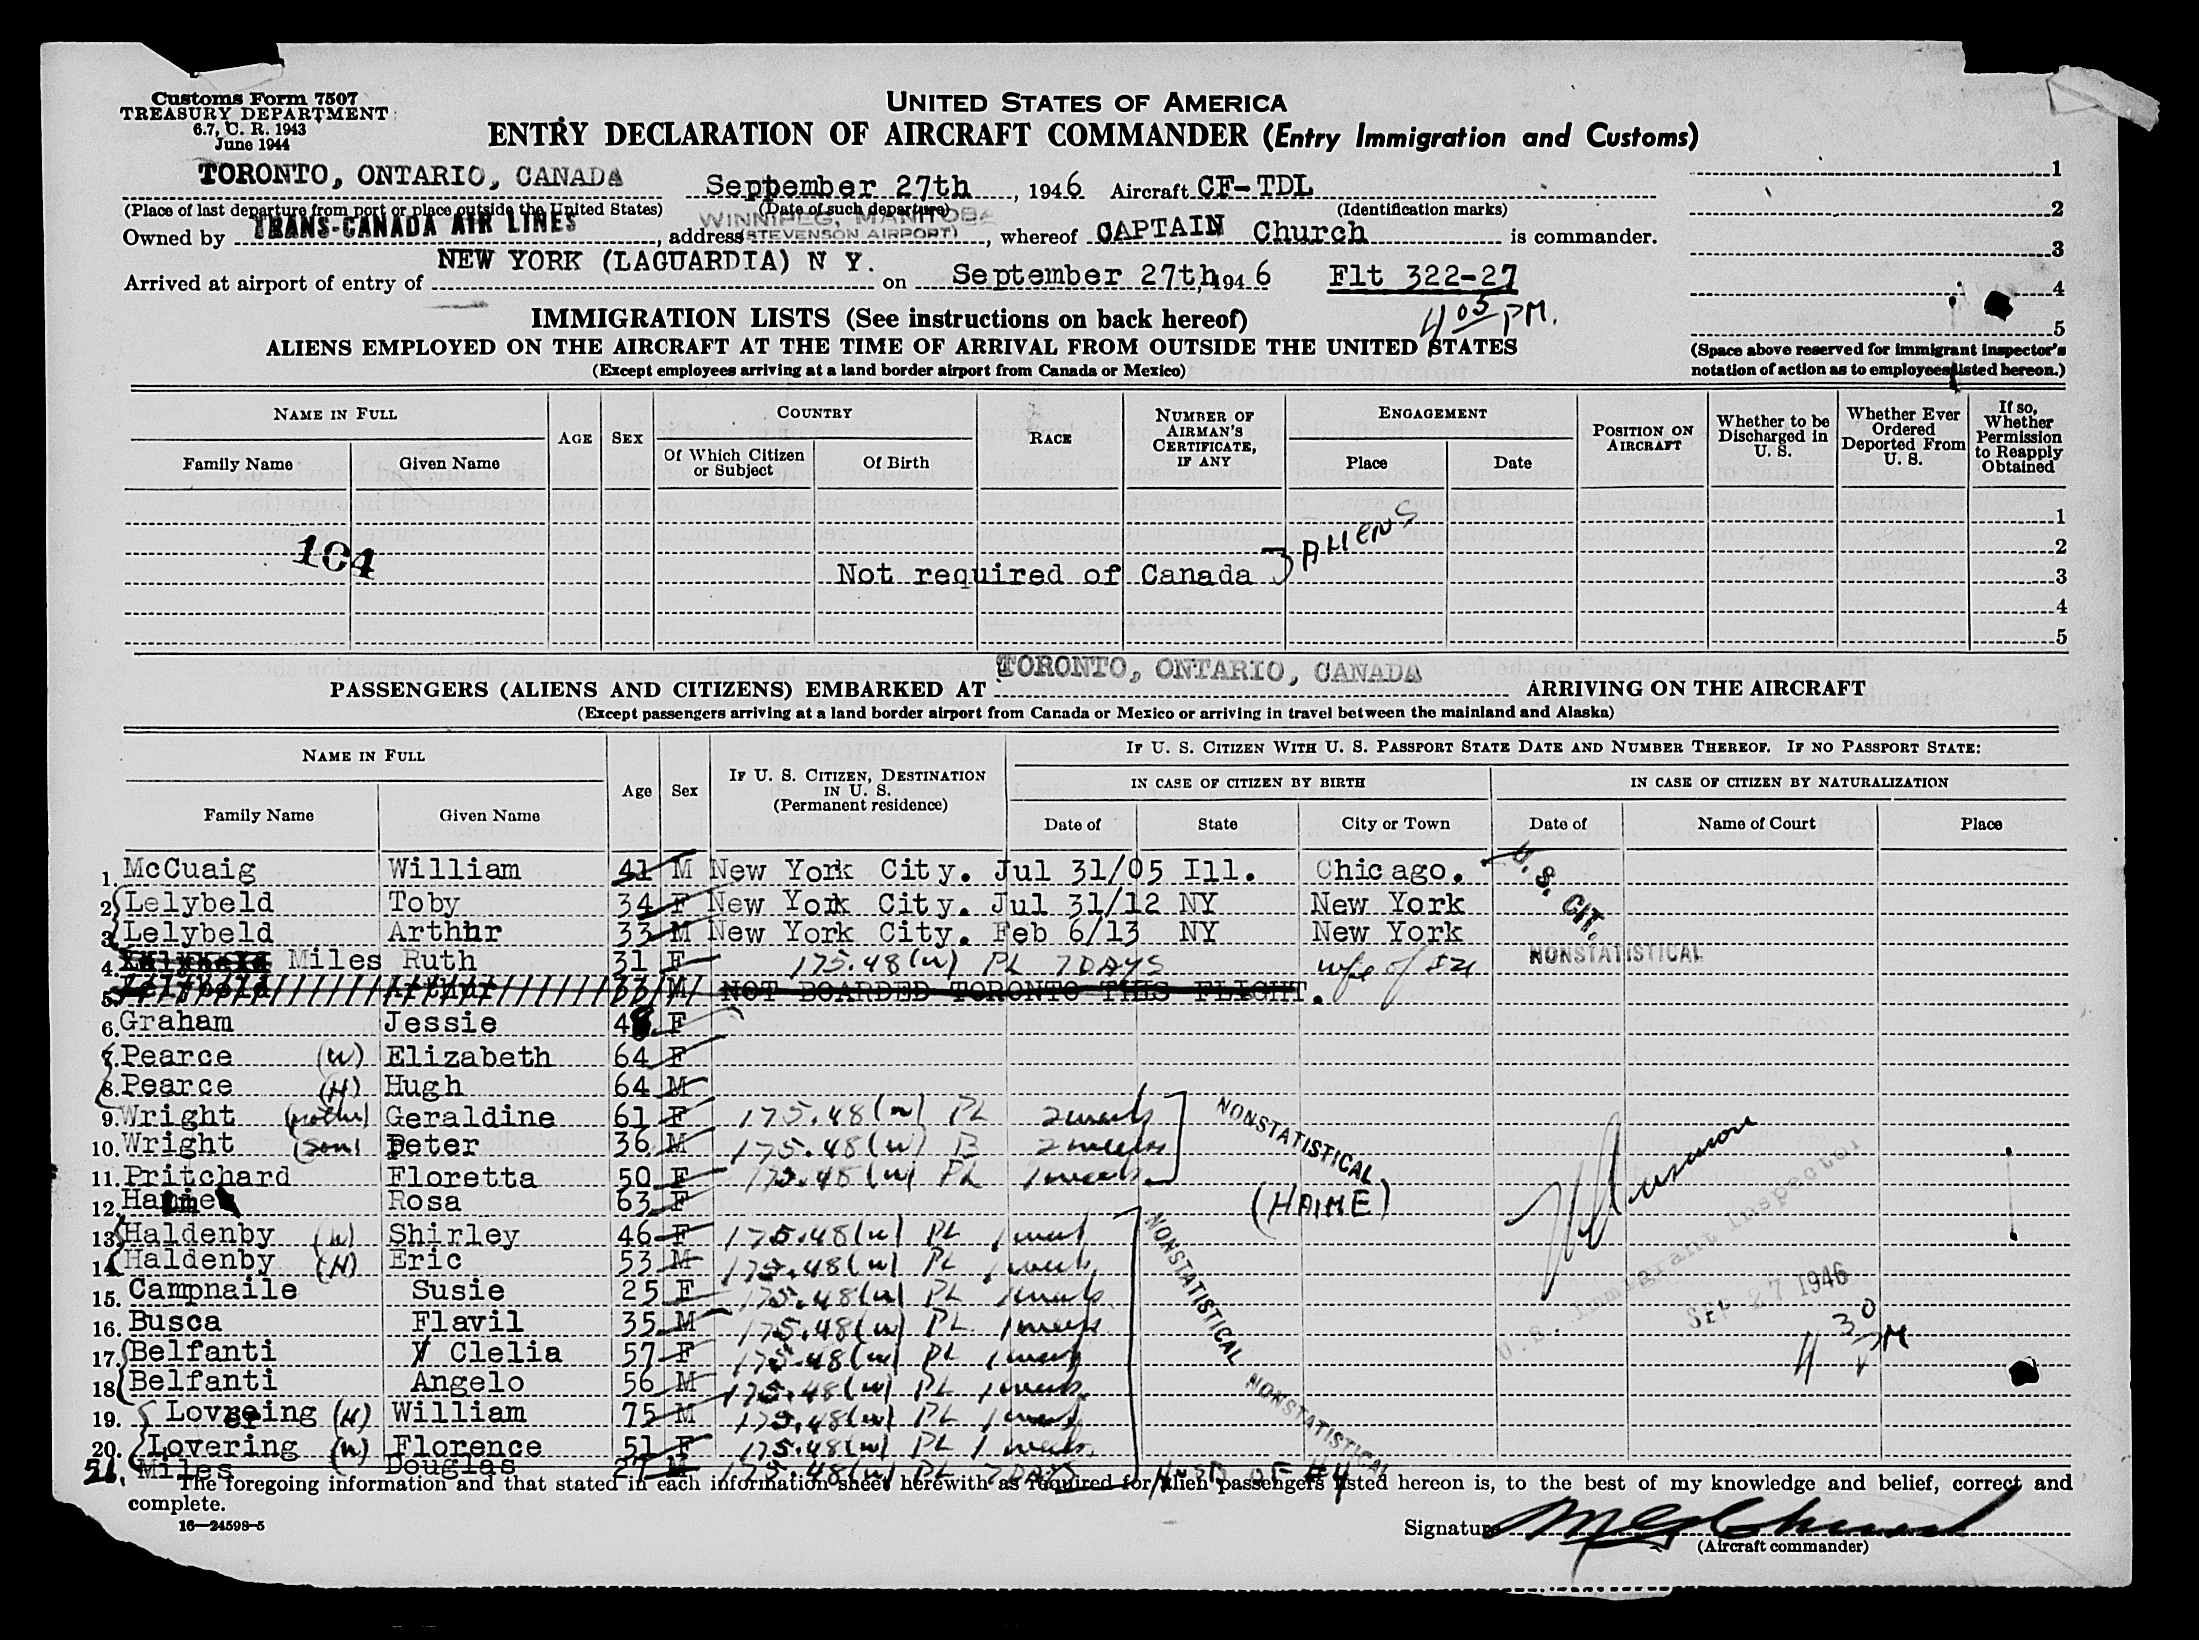 Customs Form 7507
TREASURY DEPARTMENT
6.7, C. R. 1943
June 1944
UNITED STATES OF AMERICA
ENTRY DECLARATION OF AIRCRAFT COMMANDER (Entry Immigration and Customs)
TORONTO, ONTARIO, CANADA September 27th, 1946 Aircraft CF-TDL
(Place of last departure from port or place outside the United States) (Date of such departure) (Identification marks)
WINNIPEG, MANITOBA
Owned by TRANS-CANADA AIR LINES, address (STEVENSON AIRPORT), whereof CAPTAIN Church is commander.
Arrived at airport of entry of NEW YORK (LAGUARDIA) N Y. on September 27th, 1946 Flt 322-27
4 05 PM.
1
2
3
4
5
(Space above reserved for immigrant inspector's notation of action as to employees listed hereon.)
IMMIGRATION LISTS (See instructions on back hereof)
ALIENS EMPLOYED ON THE AIRCRAFT AT THE TIME OF ARRIVAL FROM OUTSIDE THE UNITED STATES
(Except employees arriving at a land border airport from Canada or Mexico)
NAME IN FULL AGE SEX COUNTRY RACE NUMBER OF AIRMAN'S CERTIFICATE, IF ANY ENGAGEMENT POSITION ON AIRCRAFT Whether to be Discharged in U. S. Whether Ever Ordered Deported From U. S. If so, Whether Permission to Reapply Obtained
Family Name Given Name Of Which Citizen or Subject Of Birth Place Date
1
104 2
Not required of Canada ALIENS 3
4
5
PASSENGERS (ALIENS AND CITIZENS) EMBARKED AT TORONTO, ONTARIO, CANADA ARRIVING ON THE AIRCRAFT
(Except passengers arriving at a land border airport from Canada or Mexico or arriving in travel between the mainland and Alaska)
NAME IN FULL Age Sex IF U. S. CITIZEN, DESTINATION IN U. S. (Permanent residence) IF U. S. CITIZEN WITH U. S. PASSPORT STATE DATE AND NUMBER THEREOF. IF NO PASSPORT STATE:
IN CASE OF CITIZEN BY BIRTH IN CASE OF CITIZEN BY NATURALIZATION
Family Name Given Name Date of State City or Town Date of Name of Court Place
1. McCuaig William 41 M New York City. Jul 31/05 Ill. Chicago. U. S. CIT.
2. Lelybeld Toby 34 F New York City. Jul 31/12 NY New York
3. Lelybeld Arthur 33 M New York City. Feb 6/13 NY New York
4. Lelybeld Miles Ruth 31 F 175.48(w) PL 7 DAYS wife of #21 NONSTATISTICAL
5. Lelybeld Arthur 33 M NOT BOARDED TORONTO THIS FLIGHT.
6. Graham Jessie 48 F
7. Pearce (W) Elizabeth 64 F
8. Pearce (H) Hugh 64 M
9. Wright (mother) Geraldine 61 F 175.48(w) PL 2 weeks NONSTATISTICAL
10. Wright (son) Peter 36 M 175.48(w) B 2 weeks
11. Pritchard Floretta 50 F 175.48(w) PL 1 week
12. Haime Rosa 63 F (HAIME)
13. Haldenby (W) Shirley 46 F 175.48(w) PL 1 week NONSTATISTICAL
14. Haldenby (H) Eric 53 M 175.48(w) PL 1 week
15. Campnaile Susie 25 F 175.48(w) PL 1 week
16. Busca Flavil 35 M 175.48(w) PL 1 week
17. Belfanti Clelia 57 F 175.48(w) PL 1 week
18. Belfanti Angelo 56 M 175.48(w) PL 1 week
19. Lovering (H) William 75 M 175.48(w) PL 1 week NONSTATISTICAL
20. Lovering (W) Florence 51 F 175.48(w) PL 1 week
21. Miles Douglas 27 M 175.48(w) PL 7 DAYS HUSB OF #4
U.S. Immigrant Inspector
SEP 27 1946
4 30 PM
The foregoing information and that stated in each information sheet herewith as required for alien passengers listed hereon is, to the best of my knowledge and belief, correct and complete.
16—24598-5
Signature
(Aircraft commander)